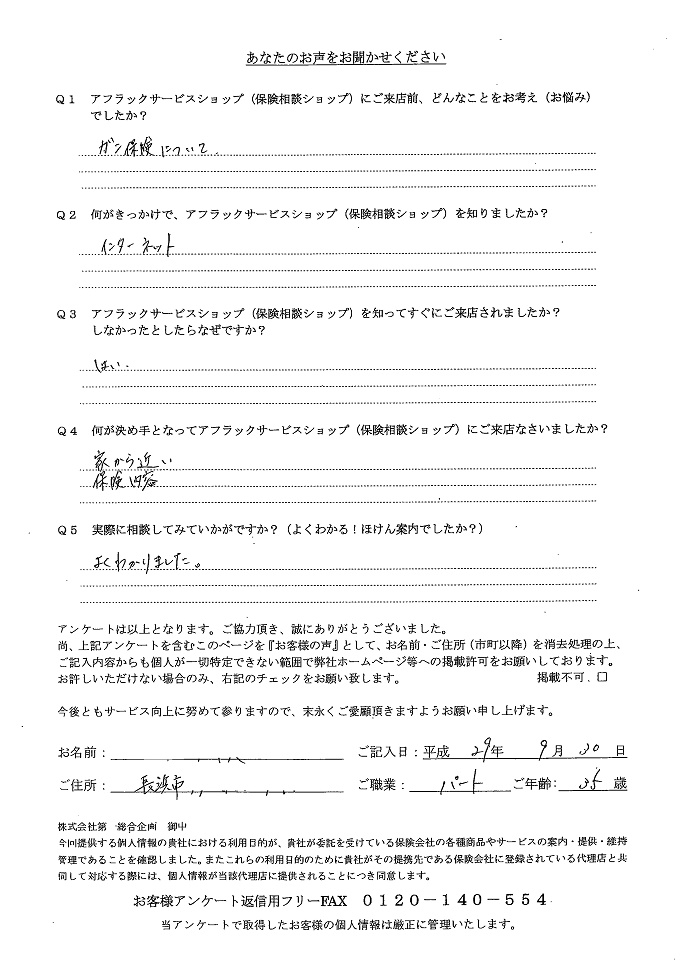 あなたのお声をお聞かせください
Q1 アフラックサービスショップ(保険相談ショップ)にご来店前、どんなことをお考え(お悩み)
でしたか?
ガン保険について
Q2 何がきっかけで、アフラックサービスショップ(保険相談ショップ)を知りましたか?
インターネット
Q3 アフラックサービスショップ(保険相談ショップ)を知ってすぐにご来店されましたか?
しなかったとしたらなぜですか?
はい.
Q4 何が決め手となってアフラックサービスショップ(保険相談ショップ)にご来店なさいましたか?
家から近い
保険内容
Q5 実際に相談してみていかがですか?(よくわかる!ほけん案内でしたか?)
よくわかりました。
アンケートは以上となります。ご協力頂き、誠にありがとうございました。
尚、上記アンケートを含むこのページを『お客様の声』として、お名前・ご住所(市町以降)を消去処理の上、
ご記入内容からも個人が一切特定できない範囲で弊社ホームページ等への掲載許可をお願いしております。
お許しいただけない場合のみ、右記のチェックをお願い致します。 掲載不可. □
今後ともサービス向上に努めて参りますので、末永くご愛顧頂きますようお願い申し上げます。
お名前: ご記入日:平成 29年 9月 30日
ご住所: 長浜市 ご職業: パート ご年齢: 35 歳
株式会社第一総合企画 御中
今回提供する個人情報の貴社における利用目的が、貴社が委託を受けている保険会社の各種商品やサービスの案内・提供・維持
管理であることを確認しました。またこれらの利用目的のために貴社がその提携先である保険会社に登録されている代理店と共
同して対応する際には、個人情報が当該代理店に提供されることにつき同意します。
お客様アンケート返信用フリーFAX 0120-140-554
当アンケートで取得したお客様の個人情報は厳正に管理いたします。